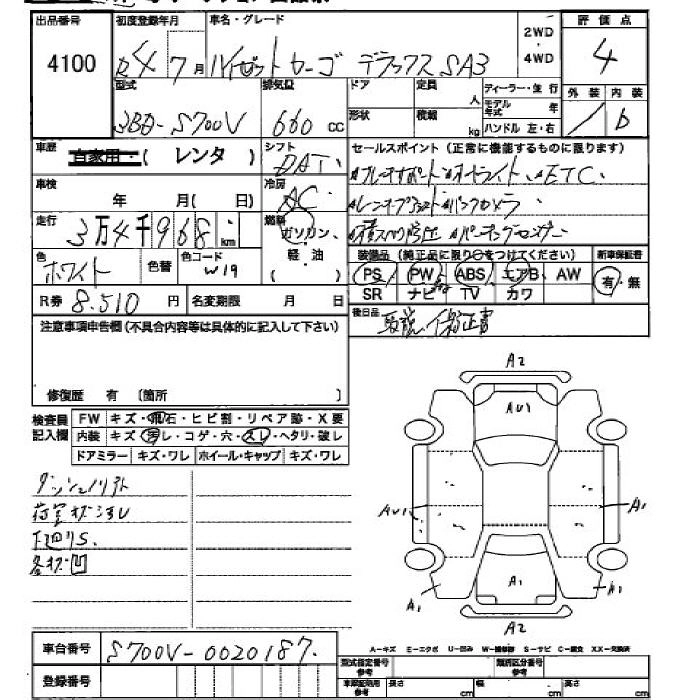 出品番号 初度登録年月 車名・グレード 2WD 評価点
4100 R4年7月 ハイゼットカーゴ デラックスSA3 ・4WD 4
型式 排気量 ドア 定員 人 ディーラー・並行 外装 内装
3BD-S700V 660cc 形状 積載 kg モデル年式 年 ハンドル 左・右 / b
車歴 自家用・( レンタ ) シフト DAT セールスポイント(正常に機能するものに限ります)
車検 年 月( 日) 冷房 AC オートライト ETC
走行 3万4千968km 燃料 ガソリン、軽・油 バックカメラ
パーキングセンサー
色 ホワイト 色替 色コード W19 装備品(純正品に限り○をつけてください) 新車保証書
PS PW ABS エアB、AW 有・無
R券 8.510円 名変期限 月 日 SR ナビ TV カワ
注意事項申告欄(不具合内容等は具体的に記入して下さい) 後日品 取説、保証書
修復歴 有 〔箇所 〕
検査員記入欄 FW キズ・飛石・ヒビ割・リペア跡・X要
内装 キズ・汚レ・コゲ・穴・スレ・ヘタリ・破レ
ドアミラー キズ・ワレ ホイール・キャップ キズ・ワレ
荷室
下廻りS
各 凹
A2
AU1
AU1 A1
A1 A1 A1
A2
A-キズ E-エクボ U-凹み W-補修跡 S-サビ C-腐食 XX-交換済
車台番号 S700V-0020187.
型式指定番号 参考 類別区分番号 参考
登録番号 車庫証明用 参考 長さ cm 幅 cm 高さ cm